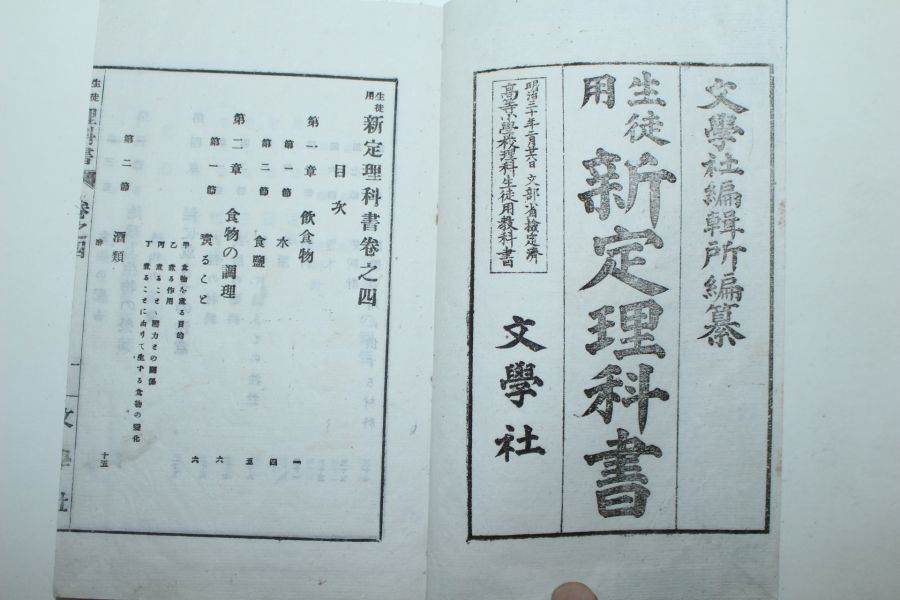 文學社編輯所編纂
生徒用 新定理科書
明治三十年二月廿六日文部省檢定濟
高等小學校理科生徒用教科書
文學社
生徒用 新定理科書卷之四
目次
第一章 飲食物 一
第一節 水
第二節 食鹽 四
第二章 食物の調理 五
第一節 煮ること 六
甲 食物を煮る目的 六
乙 煮る作用
丙 煮ることと壓力との關係
丁 煮ることに由りて生ずる食物の變化
第二節 酒類 十五
生徒用 理科書 卷之四 一 文學社